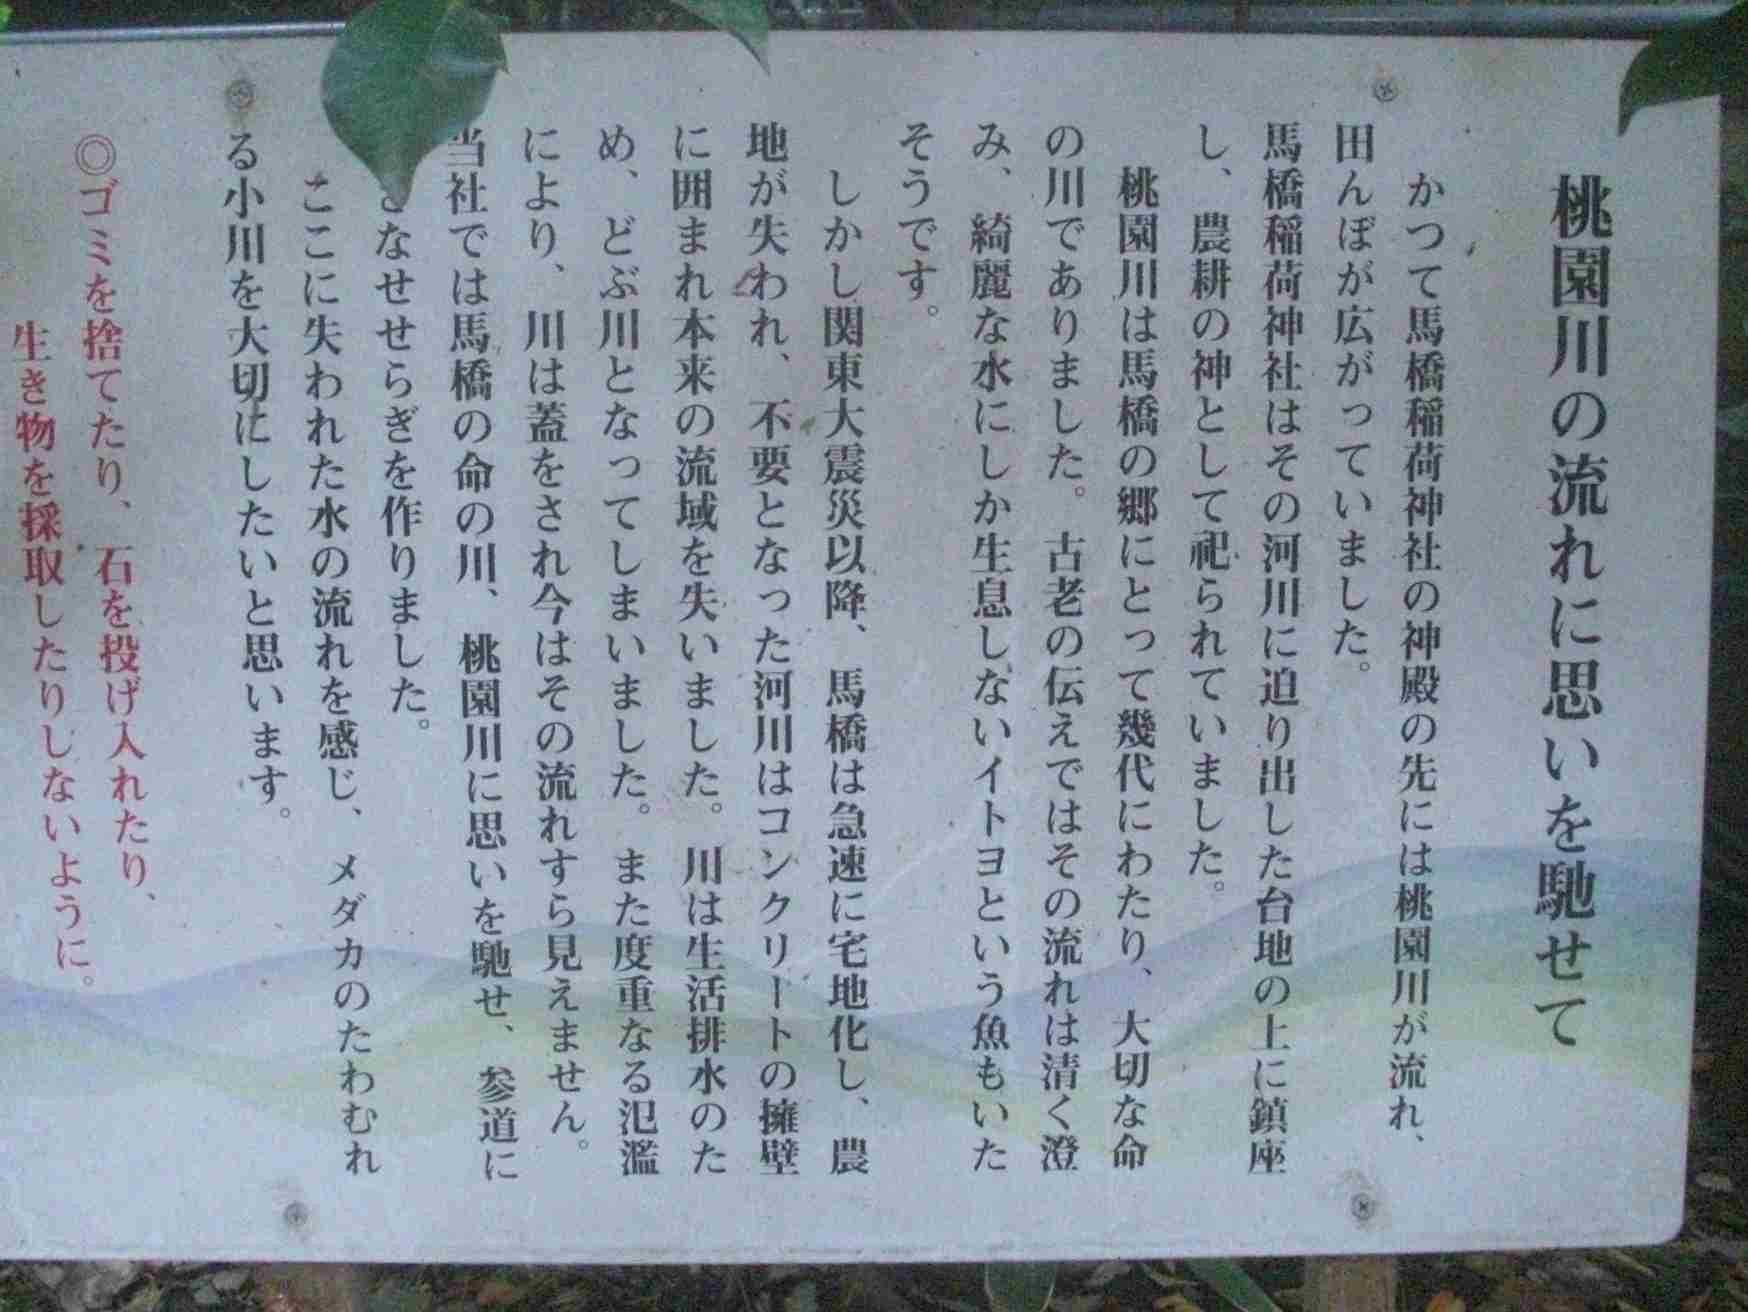 桃園川の流れに思いを馳せて
かつて馬橋稲荷神社の神殿の先には桃園川が流れ、
田んぼが広がっていました。
馬橋稲荷神社はその河川に迫り出した台地の上に鎮座
し、農耕の神として祀られていました。
桃園川は馬橋の郷にとって幾代にわたり、大切な命
の川でありました。古老の伝えではその流れは清く澄
み、綺麗な水にしか生息しないイトヨという魚もいた
そうです。
しかし関東大震災以降、馬橋は急速に宅地化し、農
地が失われ、不要となった河川はコンクリートの擁壁
に囲まれ本来の流域を失いました。川は生活排水のた
め、どぶ川となってしまいました。また度重なる氾濫
により、川は蓋をされ今はその流れすら見えません。
当社では馬橋の命の川、桃園川に思いを馳せ、参道に
なせせらぎを作りました。
ここに失われた水の流れを感じ、メダカのたわむれ
る小川を大切にしたいと思います。
◎ゴミを捨てたり、石を投げ入れたり、
生き物を採取したりしないように。